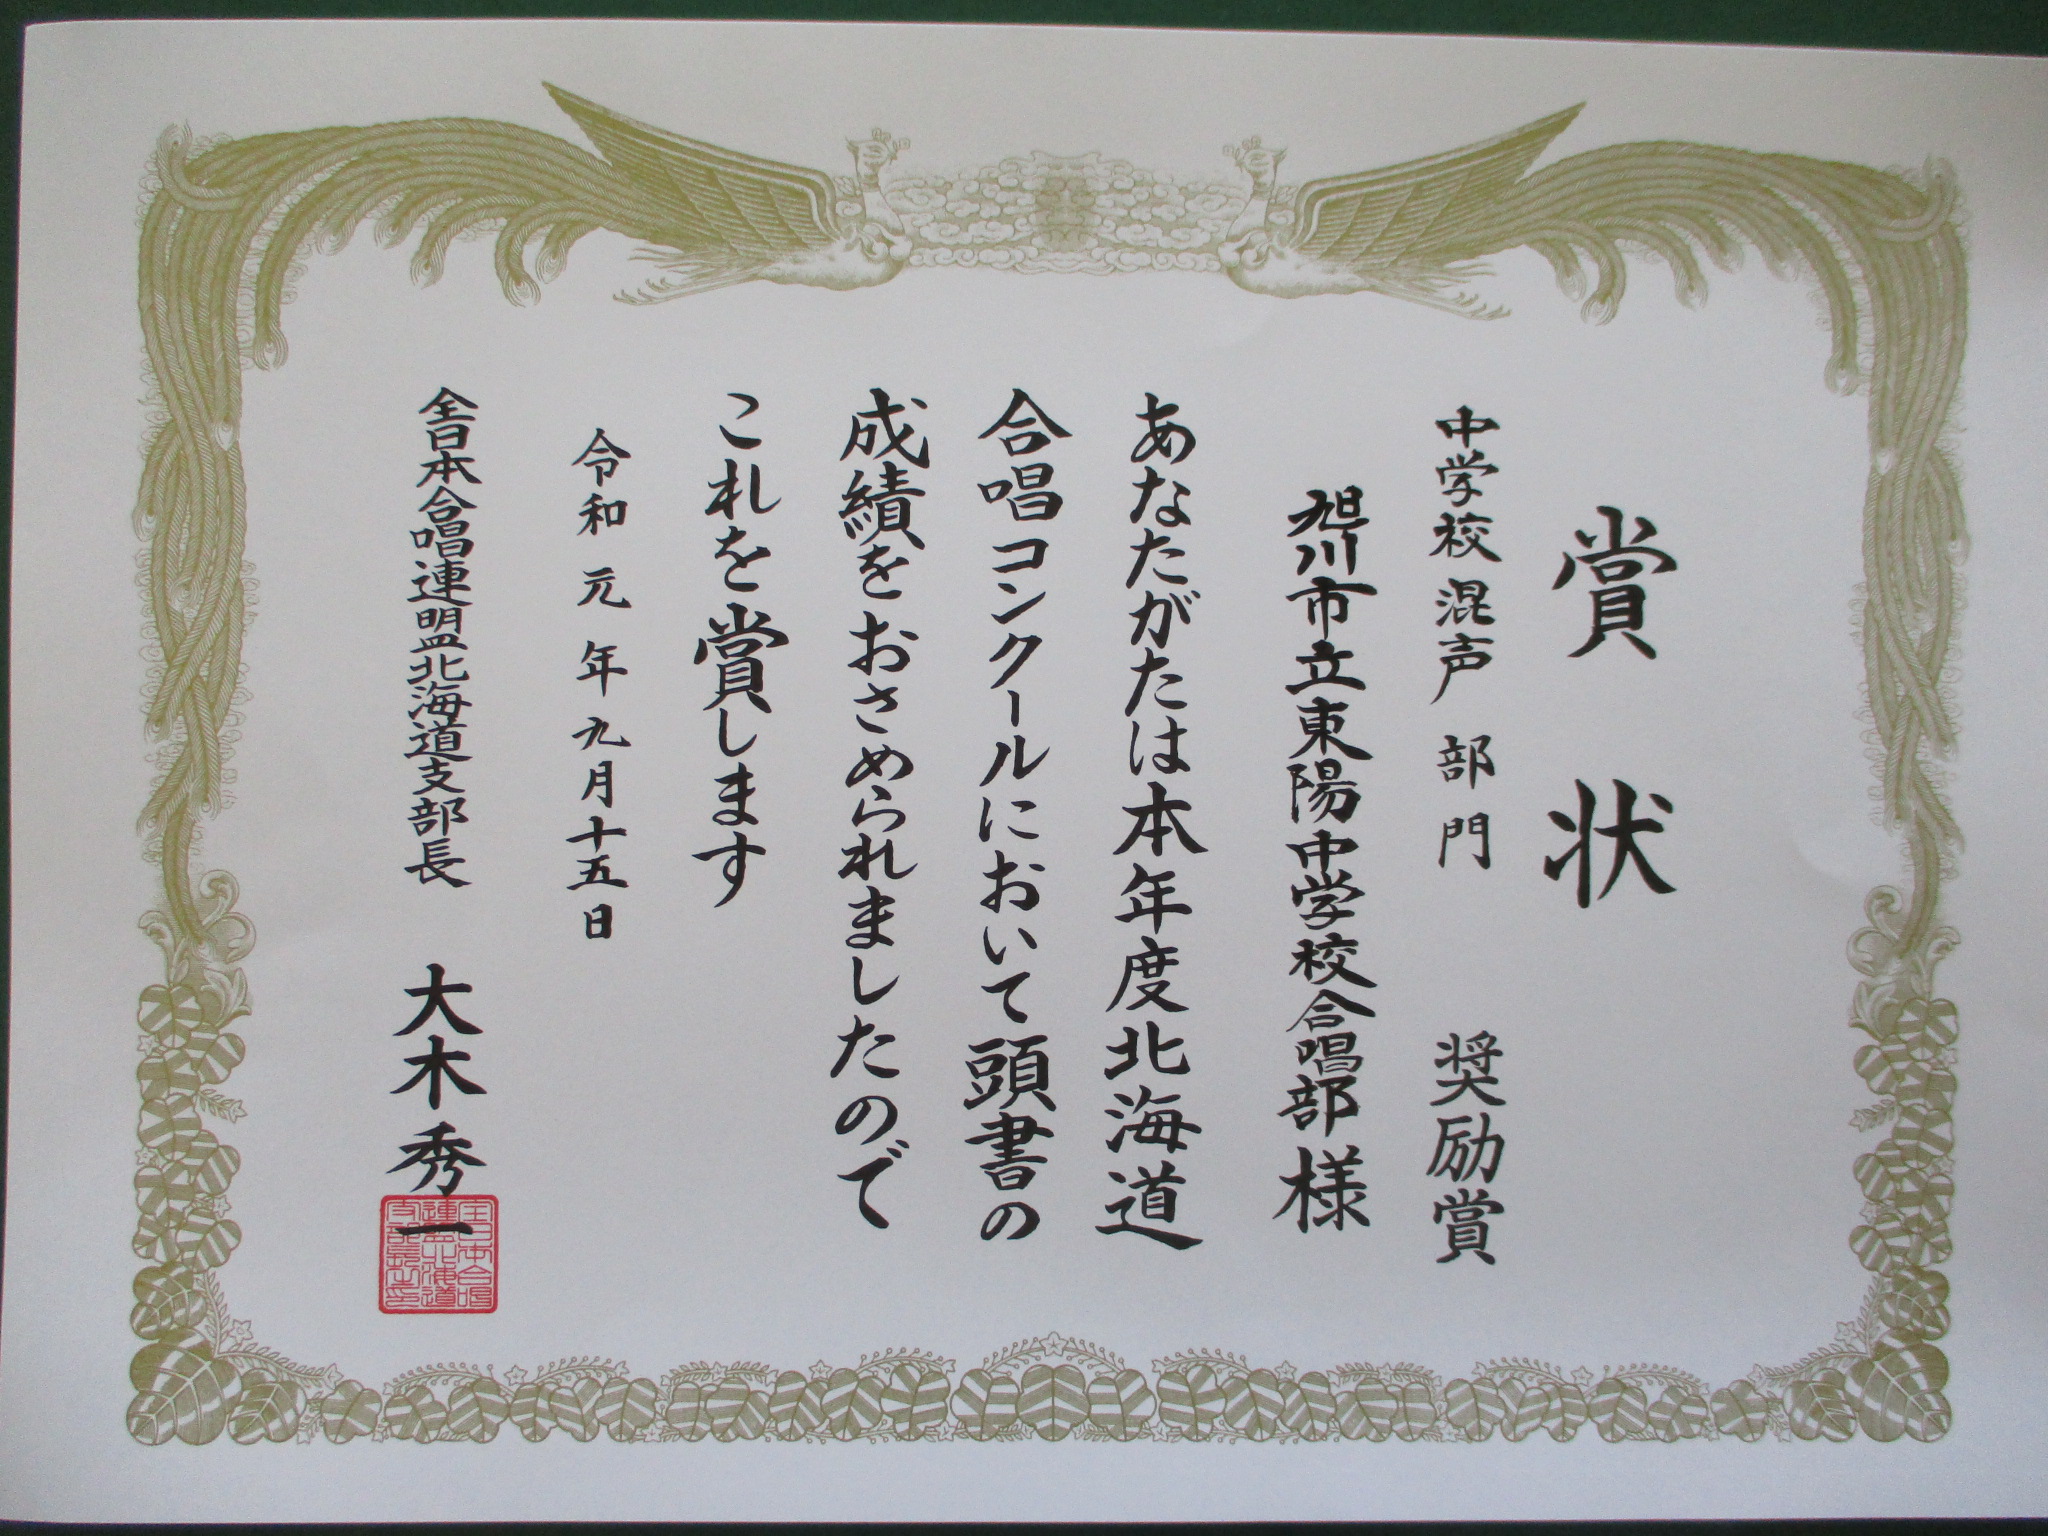 賞状
中学校混声部門 奨励賞
旭川市立東陽中学校合唱部様
あなたがたは本年度北海道
合唱コンクールにおいて頭書の
成績をおさめられましたので
これを賞します
令和元年九月十五日
全日本合唱連盟北海道支部長 大木秀一
全日本合唱
連盟北海道
支部長之印